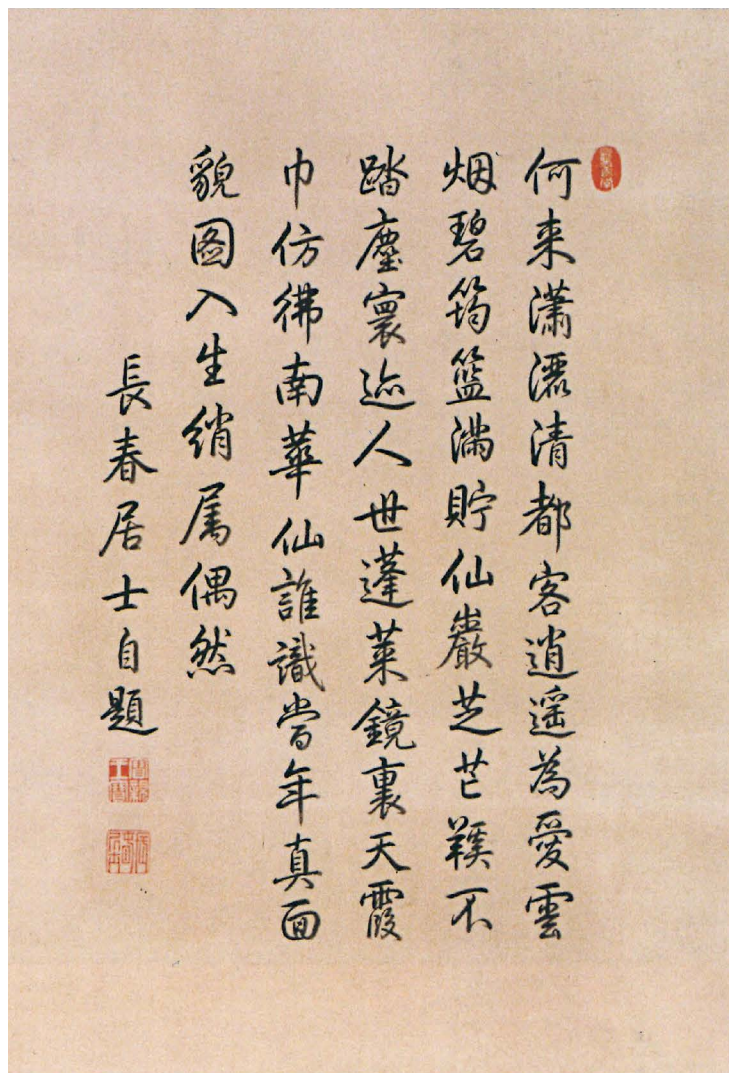 何来瀟灑清都客逍遥為愛雲
烟碧筠籃滿貯仙巖芝芒鞵不
踏塵寰迹人世蓬萊鏡裏天霞
巾仿彿南華仙誰識當年真面
貌圖入生綃属偶然
長春居士自題